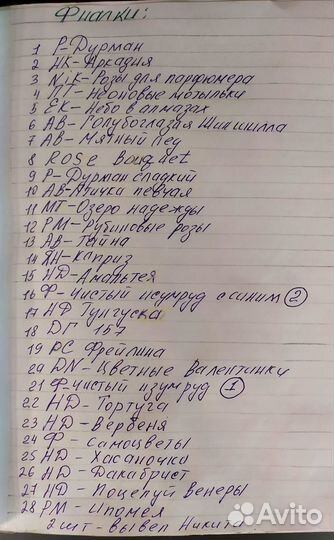 Фиалки:
1 Р-Дурман
2 НК-Аркадия
3 NiK-Розы для парфюмера
4 ПТ-Неоновые мотыльки
5 ЕК-Небо в алмазах
6 АВ-Голубоглазая Шиншилла
7 АВ-Мятный Лед
8 Rose Bouquet
9 Р-Дурман сладкий
10 АВ-Птичка певчая
11 МТ-Озеро надежды
12 РМ-Рубиновые розы
13 АВ-Тайна
14 ЯН-Каприз
15 НД-Амальтея
16 Ф-Чистый изумруд с синим 2
17 НД Тунгуска
18 ДГ 157
19 РС Фрейлина
20 DN-Цветные Валентинки
21 Ф-чистый изумруд 1
22 НД-Тортуга
23 НД-Вербена
24 Ф-самоцветы
25 НД-Хасаночка
26 НД-Декабрист
27 НД-Поцелуй Венеры
28 РМ-Ипомея
2 шт-вывел Никита.
Avito